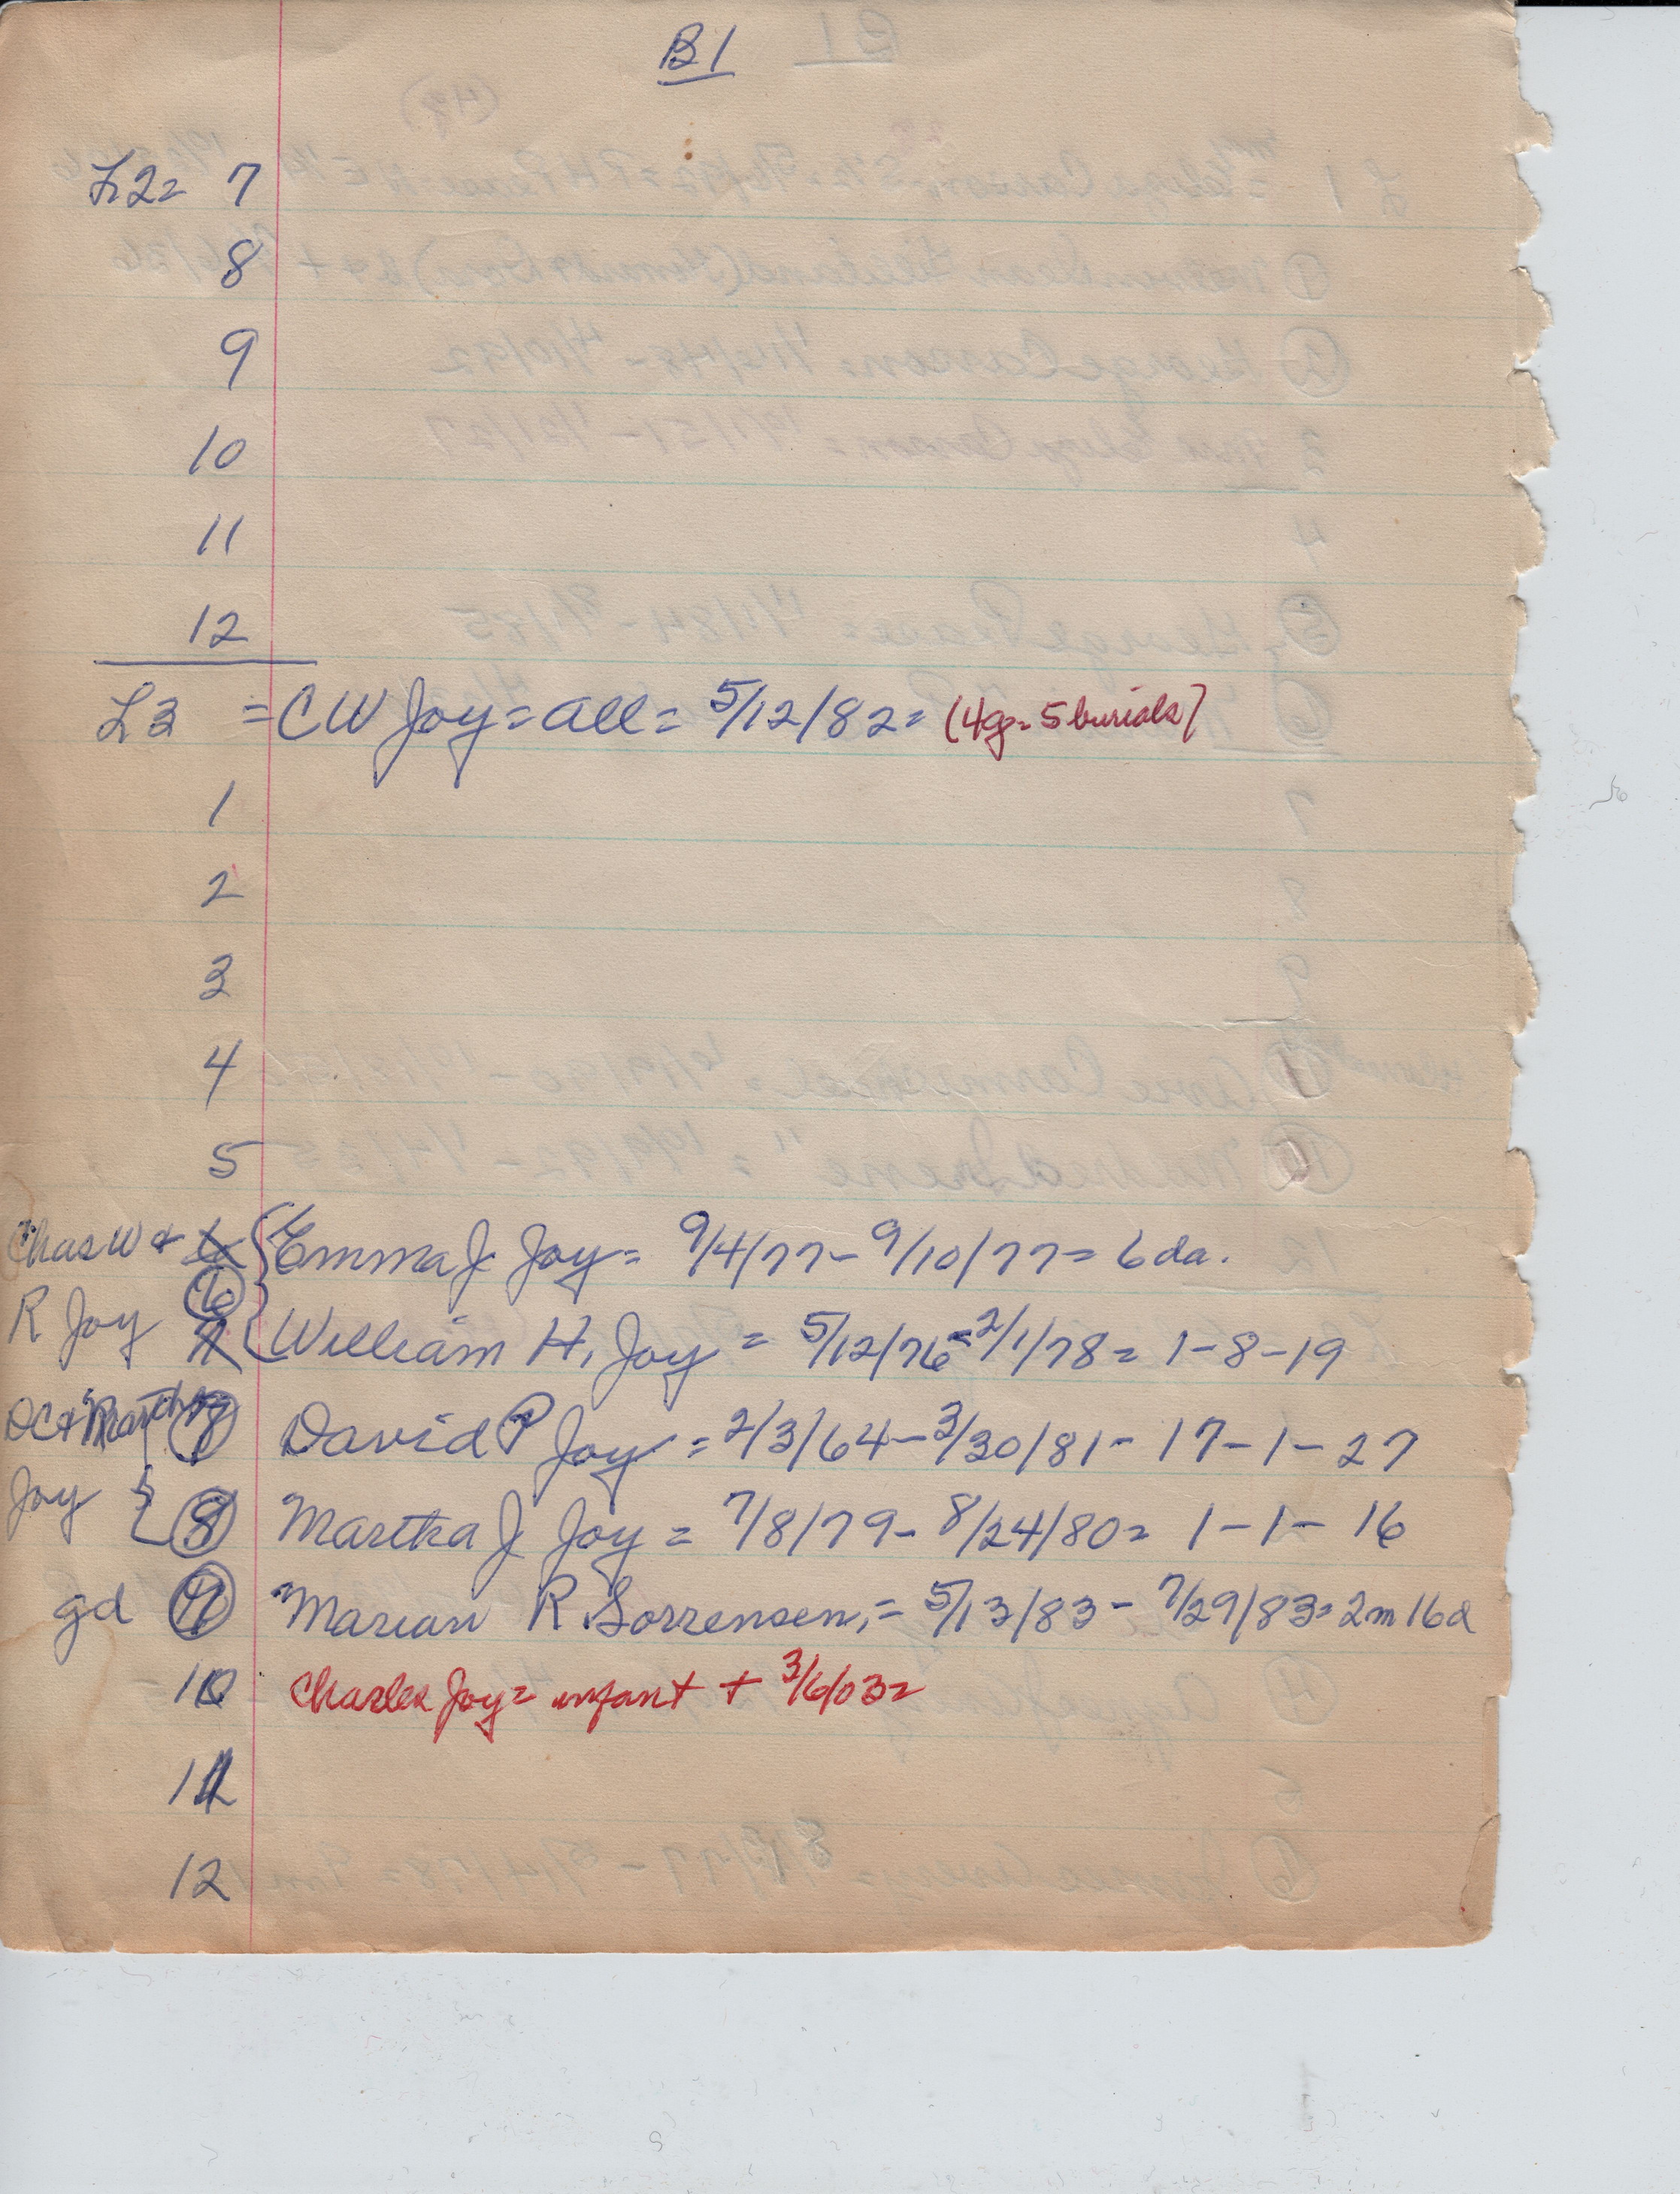 B1
L2= 7
8
9
10
11
12
L3 = CW Joy = all = 5/12/82 = (4g = 5 burials)
1
2
3
4
5
Chas W & { Emma J Joy = 9/4/77 - 9/10/77 = 6 da.
R Joy 6 { William H. Joy = 5/12/76 = 2/1/78 = 1-8-19
DC & Martha 7 David P Joy = 2/3/64 - 3/30/81 - 17-1-27
Joy 8 Martha J Joy = 7/8/79 - 8/24/80 = 1-1-16
gd 9 Marian R Sorrensen, = 5/13/83 - 7/29/83 = 2m 16d
10 Charles Joy = infant + 3/6/03 =
11
12